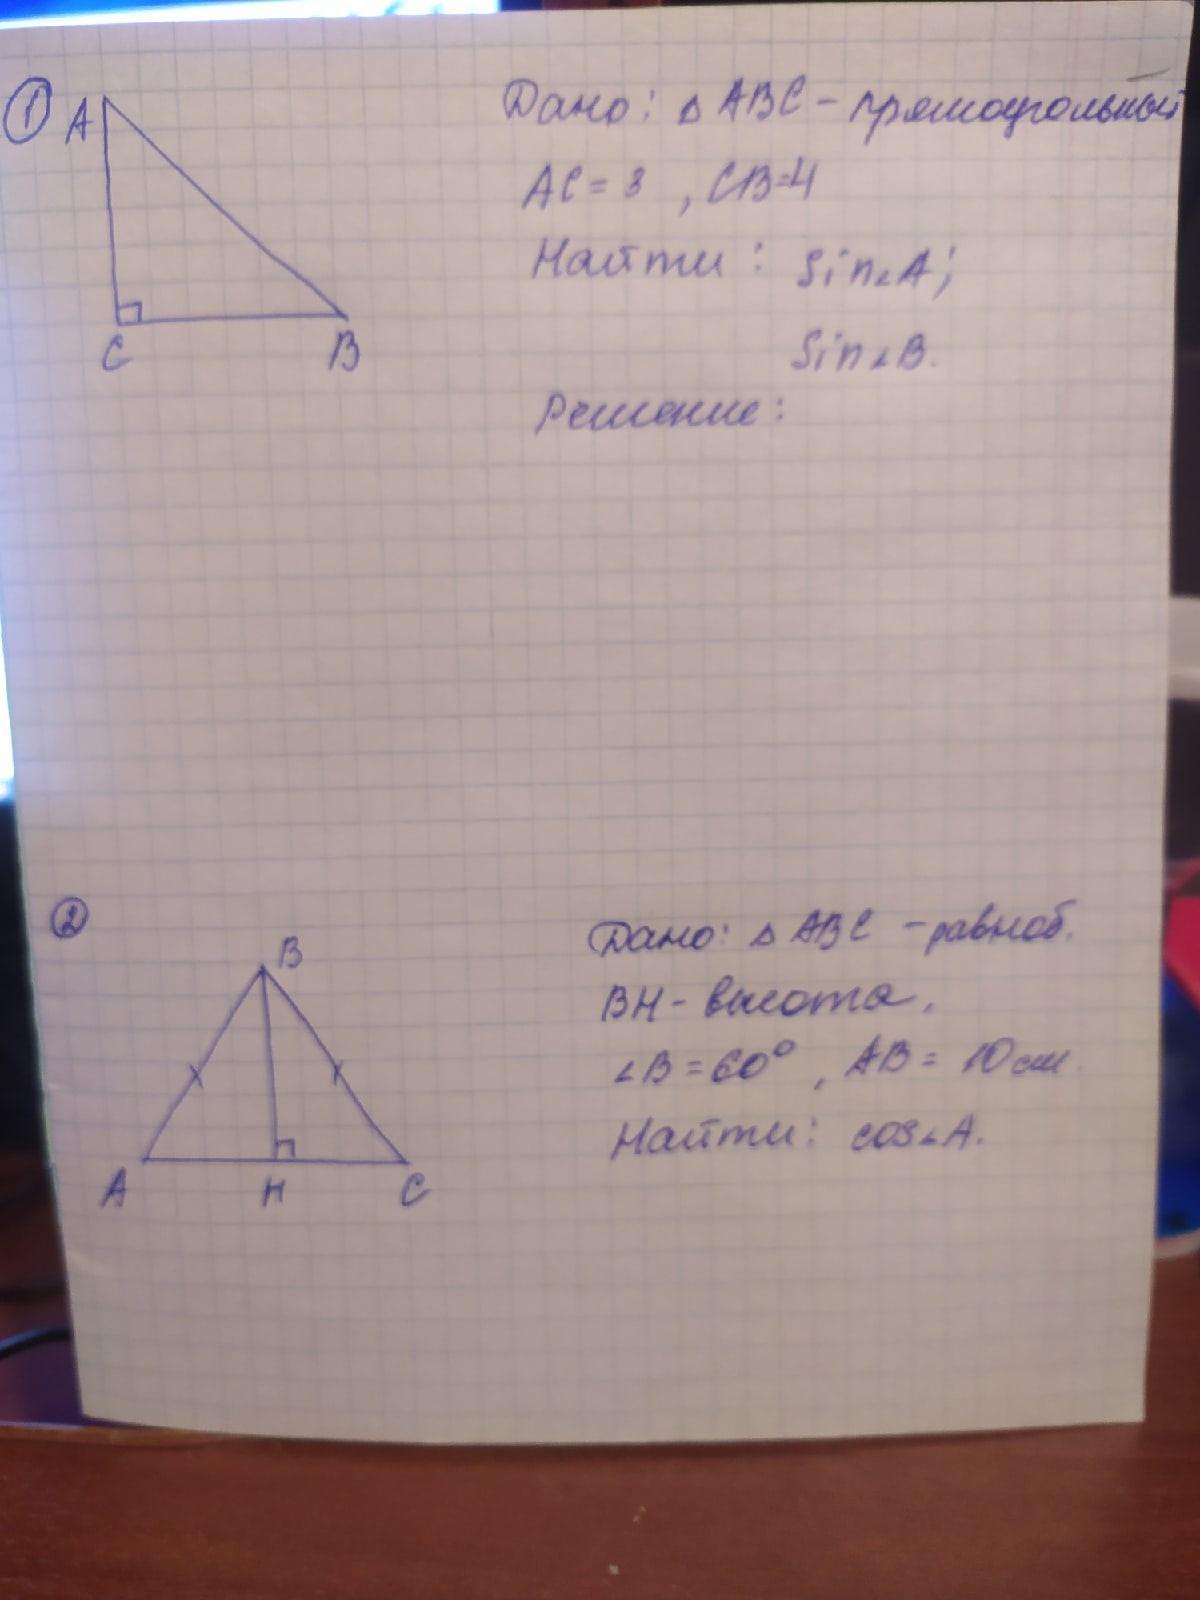 ①
A
C
B
Дано: △ABC - прямоугольный
AC = 3 , CB=4
Найти: Sin∠A;
Sin∠B.
Решение:
②
B
A
H
C
Дано: △ABC - равноб.
BH - высота.
∠B = 60° , AB = 10 см.
Найти: cos∠A.